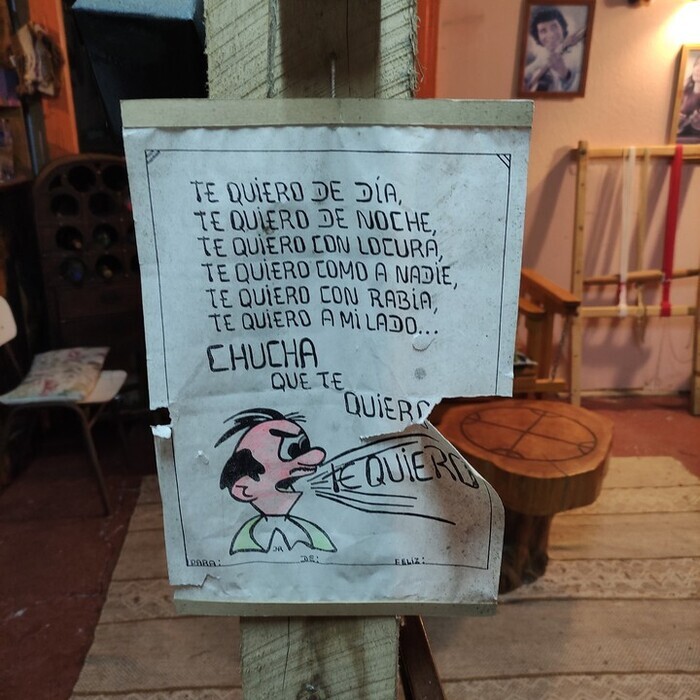 TE QUIERO DE DÍA,
TE QUIERO DE NOCHE,
TE QUIERO CON LOCURA,
TE QUIERO COMO A NADIE,
TE QUIERO CON RABIA,
TE QUIERO A MI LADO...
CHUCHA
QUE TE
QUIERO
TE QUIERO
PARA: DE: FELIZ: